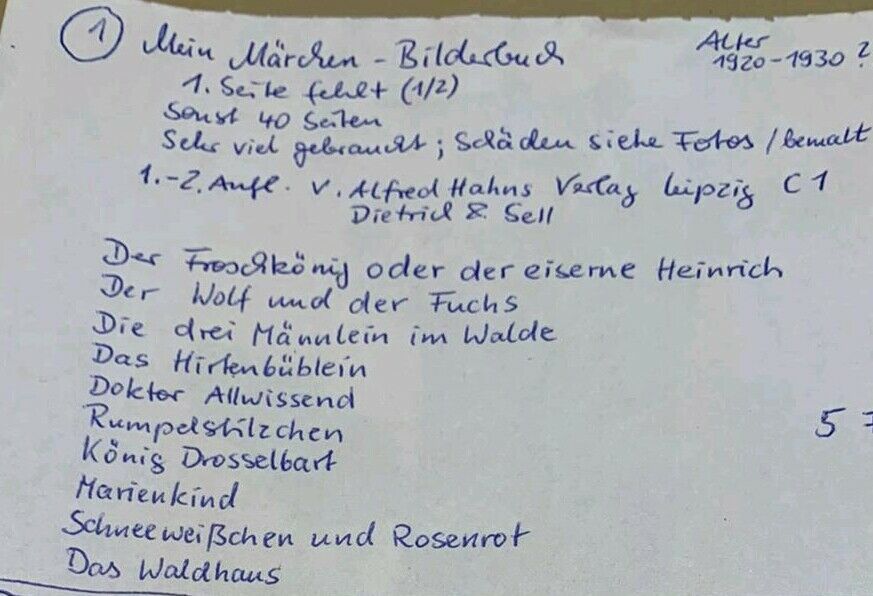 ① Mein Märchen - Bilderbuch
Alter
1920-1930 ?
1. Seite fehlt (1/2)
Sonst 40 Seiten
Sehr viel gebraucht ; Schäden siehe Fotos / bemalt
1.-2. Aufl. v. Alfred Hahns Verlag Leipzig C 1
Dietrich & Sell
Der Froschkönig oder der eiserne Heinrich
Der Wolf und der Fuchs
Die drei Männlein im Walde
Das Hirtenbüblein
Doktor Allwissend
5 =
Rumpelstilzchen
König Drosselbart
Marienkind
Schneeweißchen und Rosenrot
Das Waldhaus